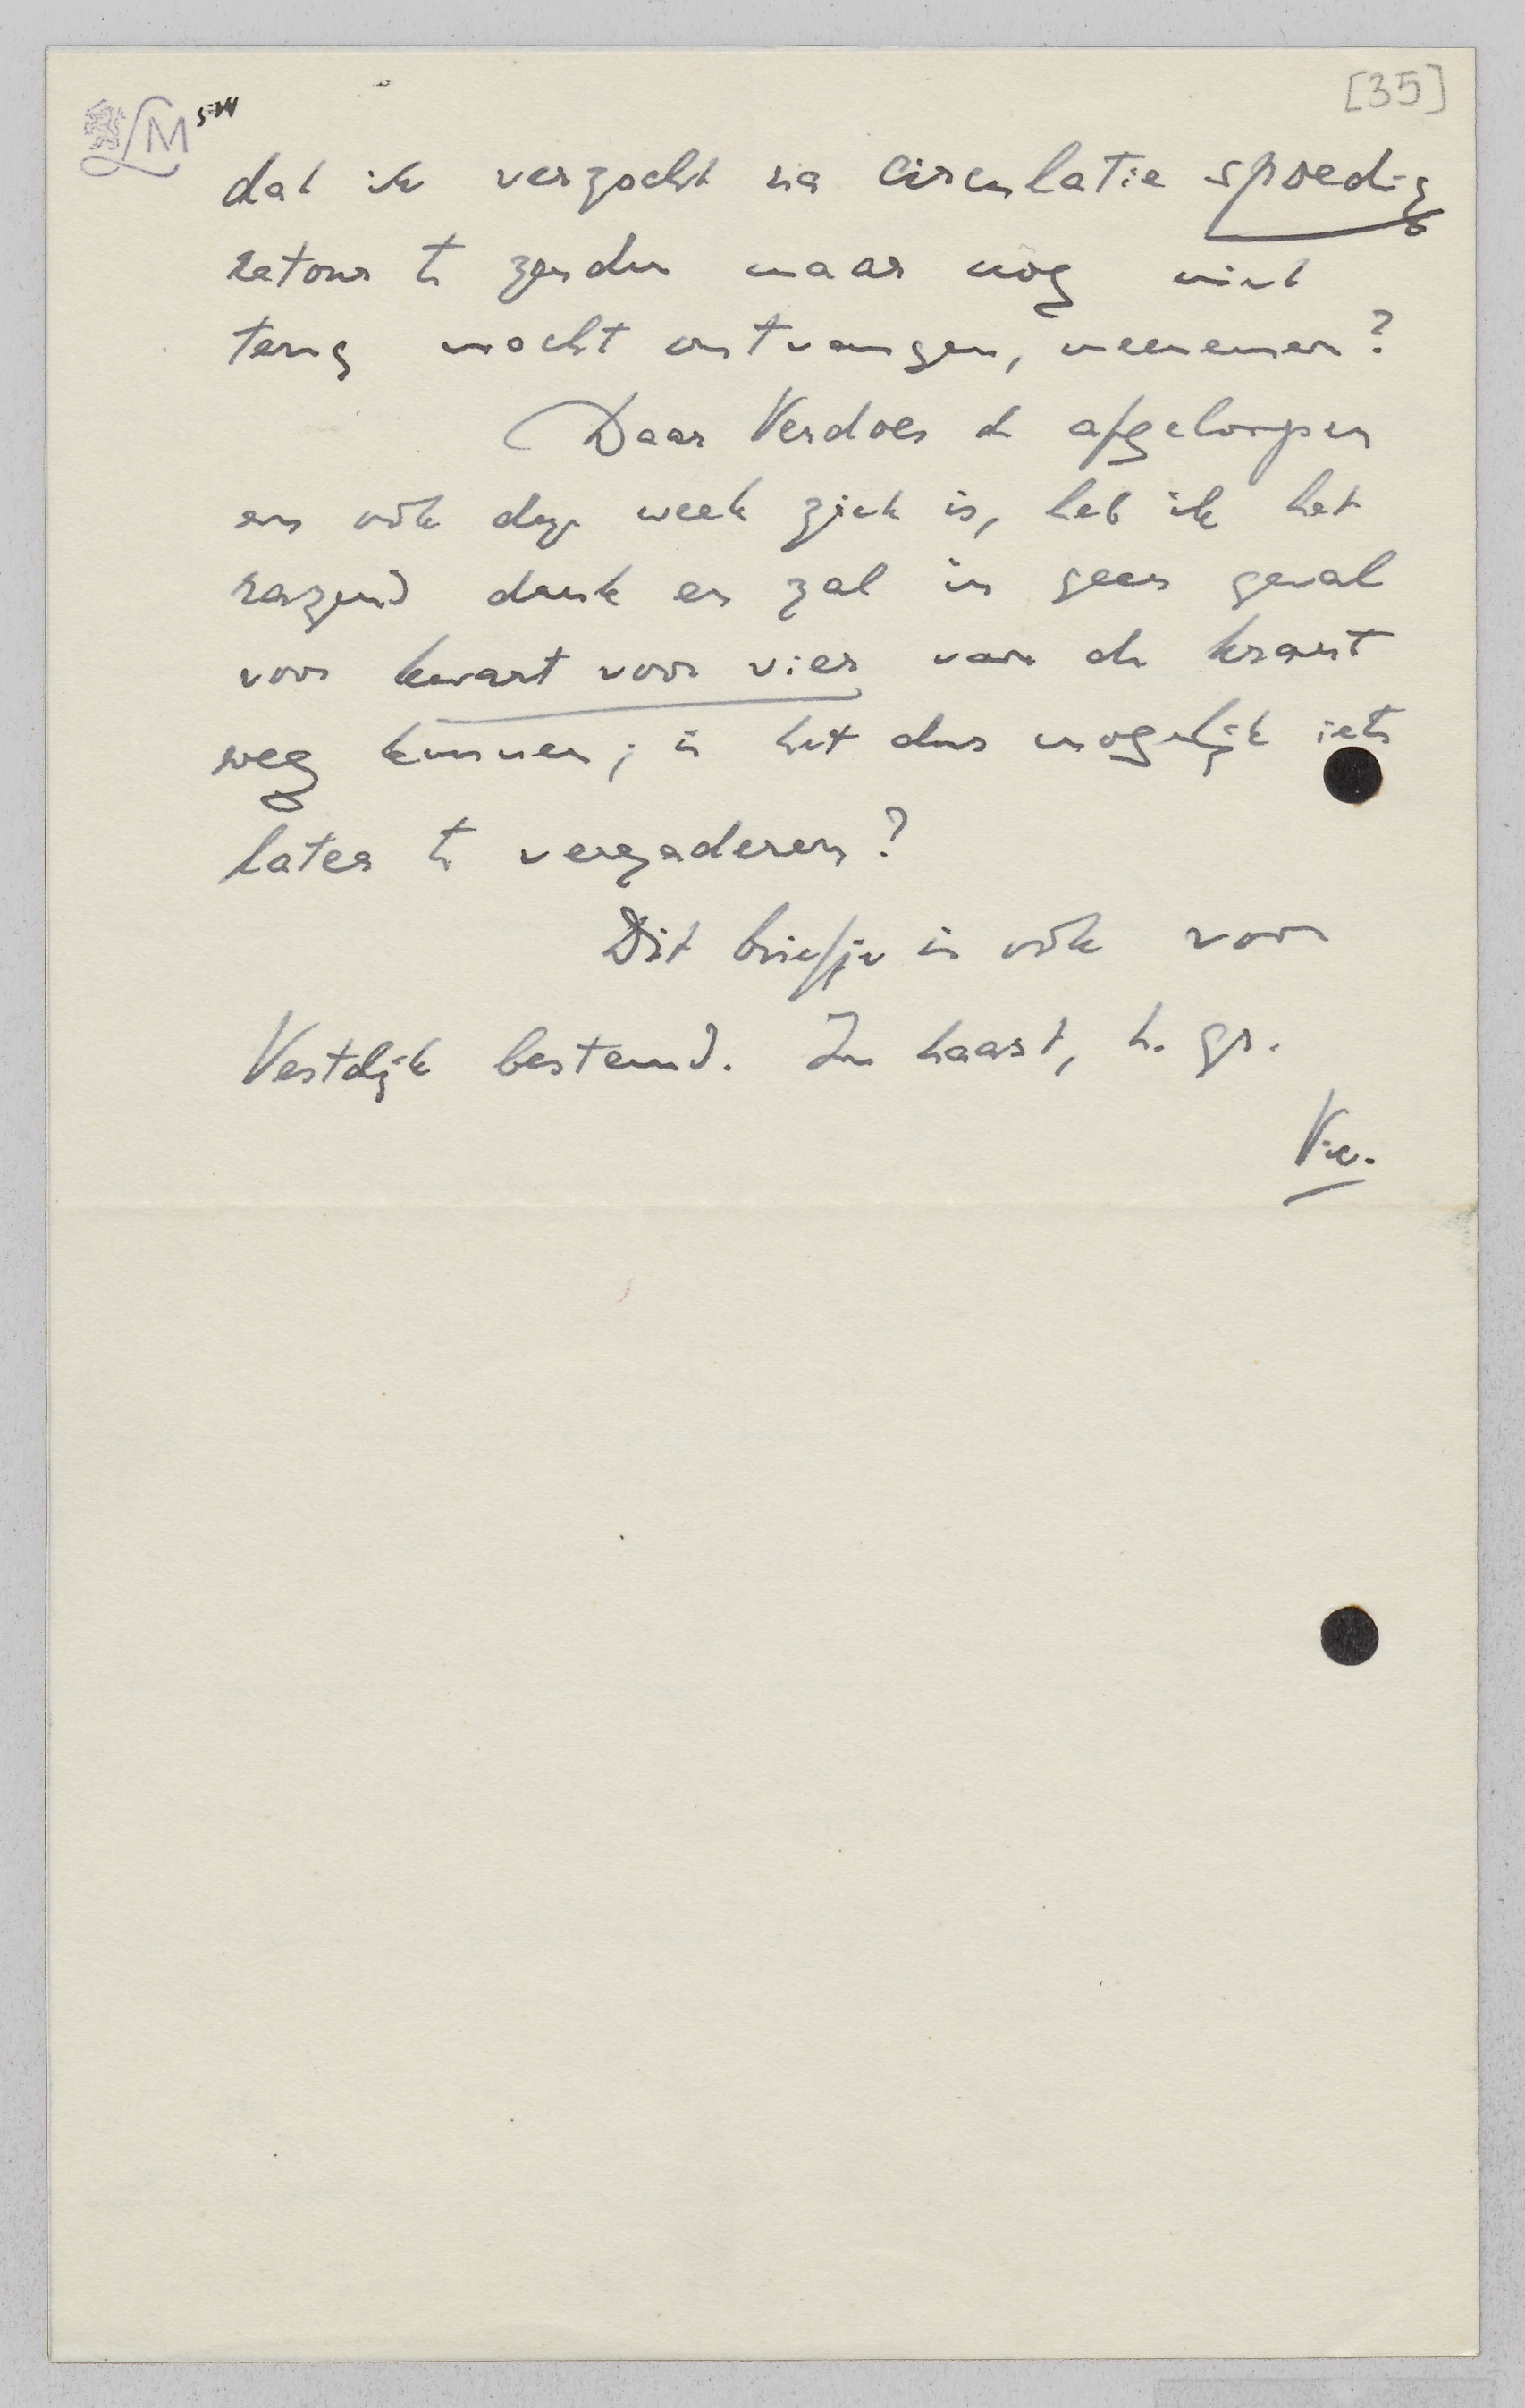 [35]
LM
dat ik verzocht na circulatie spoedig
retour te zenden maar nòg niet
terug mocht ontvangen, meenemen?
Daar Verdoes de afgeloopen
en oòk deze week ziek is, heb ik het
razend druk en zal in geen geval
voor kwart voor vier van de krant
weg kunnen; is het dus mogelijk iets
later te vergaderen?
Dit briefje is oòk voor
Vestdijk bestemd. In haast, h. gr.
Vic.